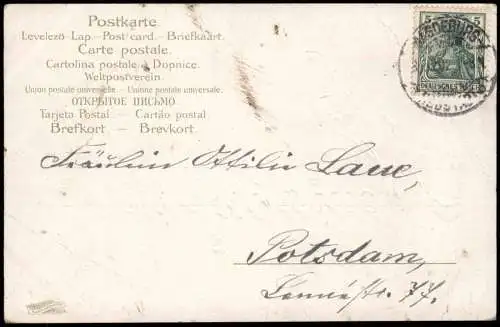 Postkarte
Levelező-Lap. – Post card. – Briefkaart.
Carte postale.
Cartolina postale á Dopnice.
Weltpostverein.
Union postale universelle. – Unione postale universale.
ОТКРЫТОЕ ПИСЬМО
Tarjeta Postal — Cartão postal
Brefkort – Brevkort.
5 5
DEUTSCHES REICH
MAGDEBURG
NEUSTADT
Fräulein Ottilie Laue,
Potsdam,
Lennéstr. 77.